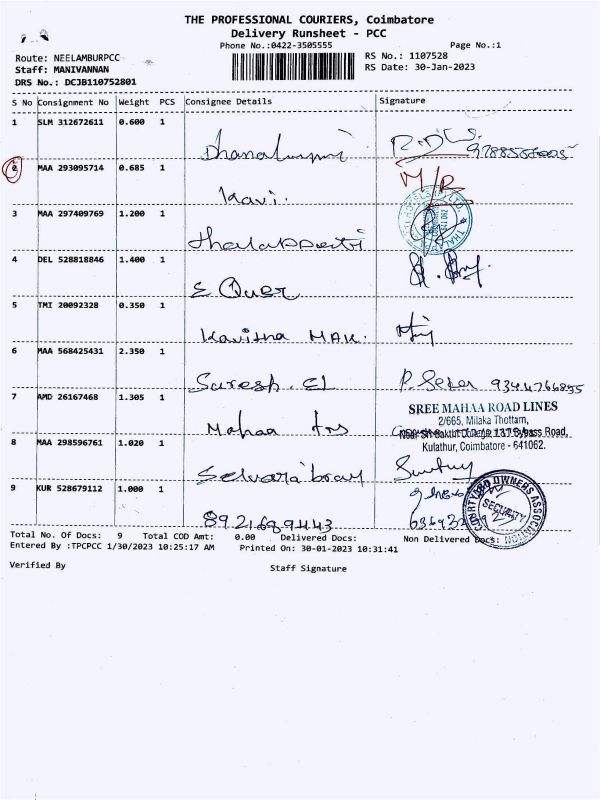 THE PROFESSIONAL COURIERS, Coimbatore
Delivery Runsheet - PCC
Phone No.:0422-3505555 Page No.:1
Route: NEELAMBURPCC RS No.: 1107528
Staff: MANIVANNAN RS Date: 30-Jan-2023
DRS No.: DCJB110752801
S No Consignment No Weight PCS Consignee Details Signature
1 SLM 312672611 0.600 1
2 MAA 293095714 0.685 1 M/R
Kavi.
3 MAA 297409769 1.200 1
4 DEL 528818846 1.400 1
5 TMI 20092328 0.350 1
Kavitha MAK.
6 MAA 568425431 2.350 1
Suresh. El P. Seker 9344766855
7 AMD 26167468 1.305 1
SREE MAHAA ROAD LINES
2/665, Milaka Thottam,
Near Sri Sakthi College, L&T Bypass Road,
Kulathur, Coimbatore - 641062.
Mahaa
8 MAA 298596761 1.020 1
9 KUR 528679112 1.000 1
COURTYARD OWNERS ASSOCIATION
SECURITY
8921689443
Total No. Of Docs: 9 Total COD Amt: 0.00 Delivered Docs: Non Delivered Docs:
Entered By :TPCPCC 1/30/2023 10:25:17 AM Printed On: 30-01-2023 10:31:41
Verified By Staff Signature